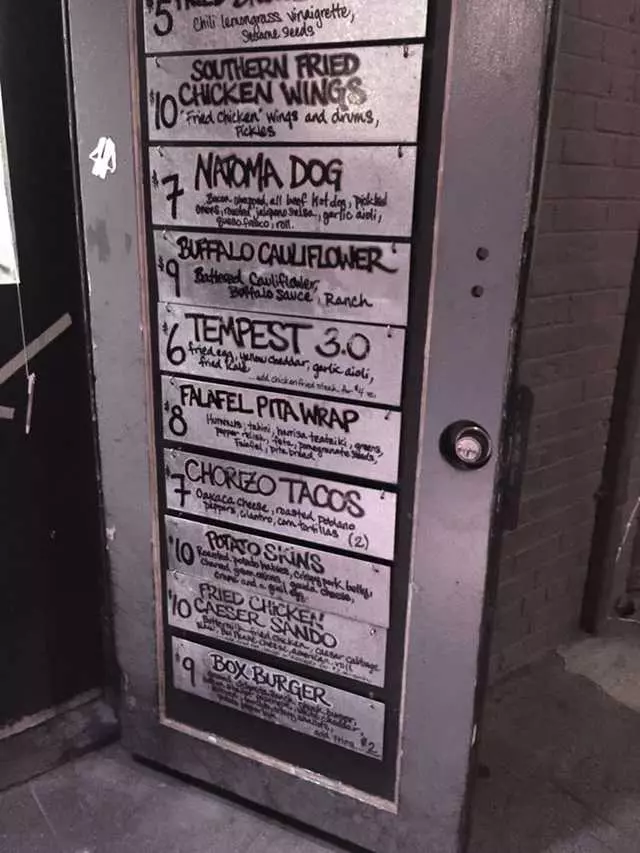 $5 FRIED
Chili lemongrass vinaigrette,
Sesame seeds
SOUTHERN FRIED
$10 CHICKEN WINGS
"Fried Chicken" wings and drums,
Pickles
NATOMA DOG
$7 Bacon wrapped, all beef Hot dog, pickled
onions, roasted jalapeno salsa, garlic aioli,
queso fresco, roll.
BUFFALO CAULIFLOWER
$9 Battered Cauliflower,
Buffalo sauce, Ranch
TEMPEST 3.0
$6 fried egg, yellow cheddar, garlic aioli,
fried Kale
...add chicken fried steak for $4
FALAFEL PITA WRAP
$8 Hummus, tahini, harrisa tzatziki, greens,
pepper relish, feta, pomegranate seeds,
Falafel, pita bread
CHORIZO TACOS
$7 Oaxaca cheese, roasted poblano
peppers, cilantro, corn tortillas (2)
POTATO SKINS
$10 Roasted potato babies, crispy pork belly,
charred green onions, gouda cheese,
creme and a quail egg
FRIED CHICKEN
$10 CAESER SANDO
Buttermilk fried chicken, caesar cabbage
cheese, american roll
BOX BURGER
$9
cheddar,
add fries $2